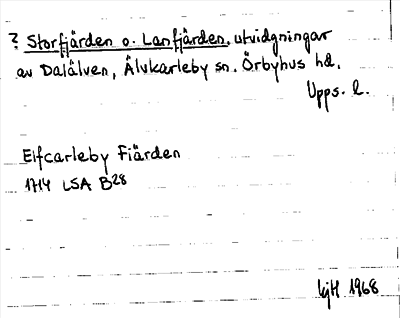 ? Storfjärden o. Lanfjärden, utvidgningar
av Dalälven, Älvkarleby sn. Örbyhus hd.
Upps. l.
Elfcarleby Fiärden
1714 LSA B28
1968